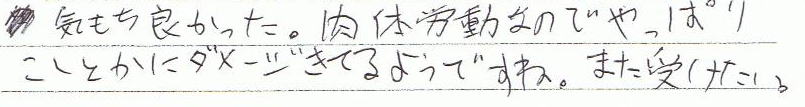 気もち良かった。肉体労働なのでやっぱり
こしとかにダメージきてるようですね。また受けたい。